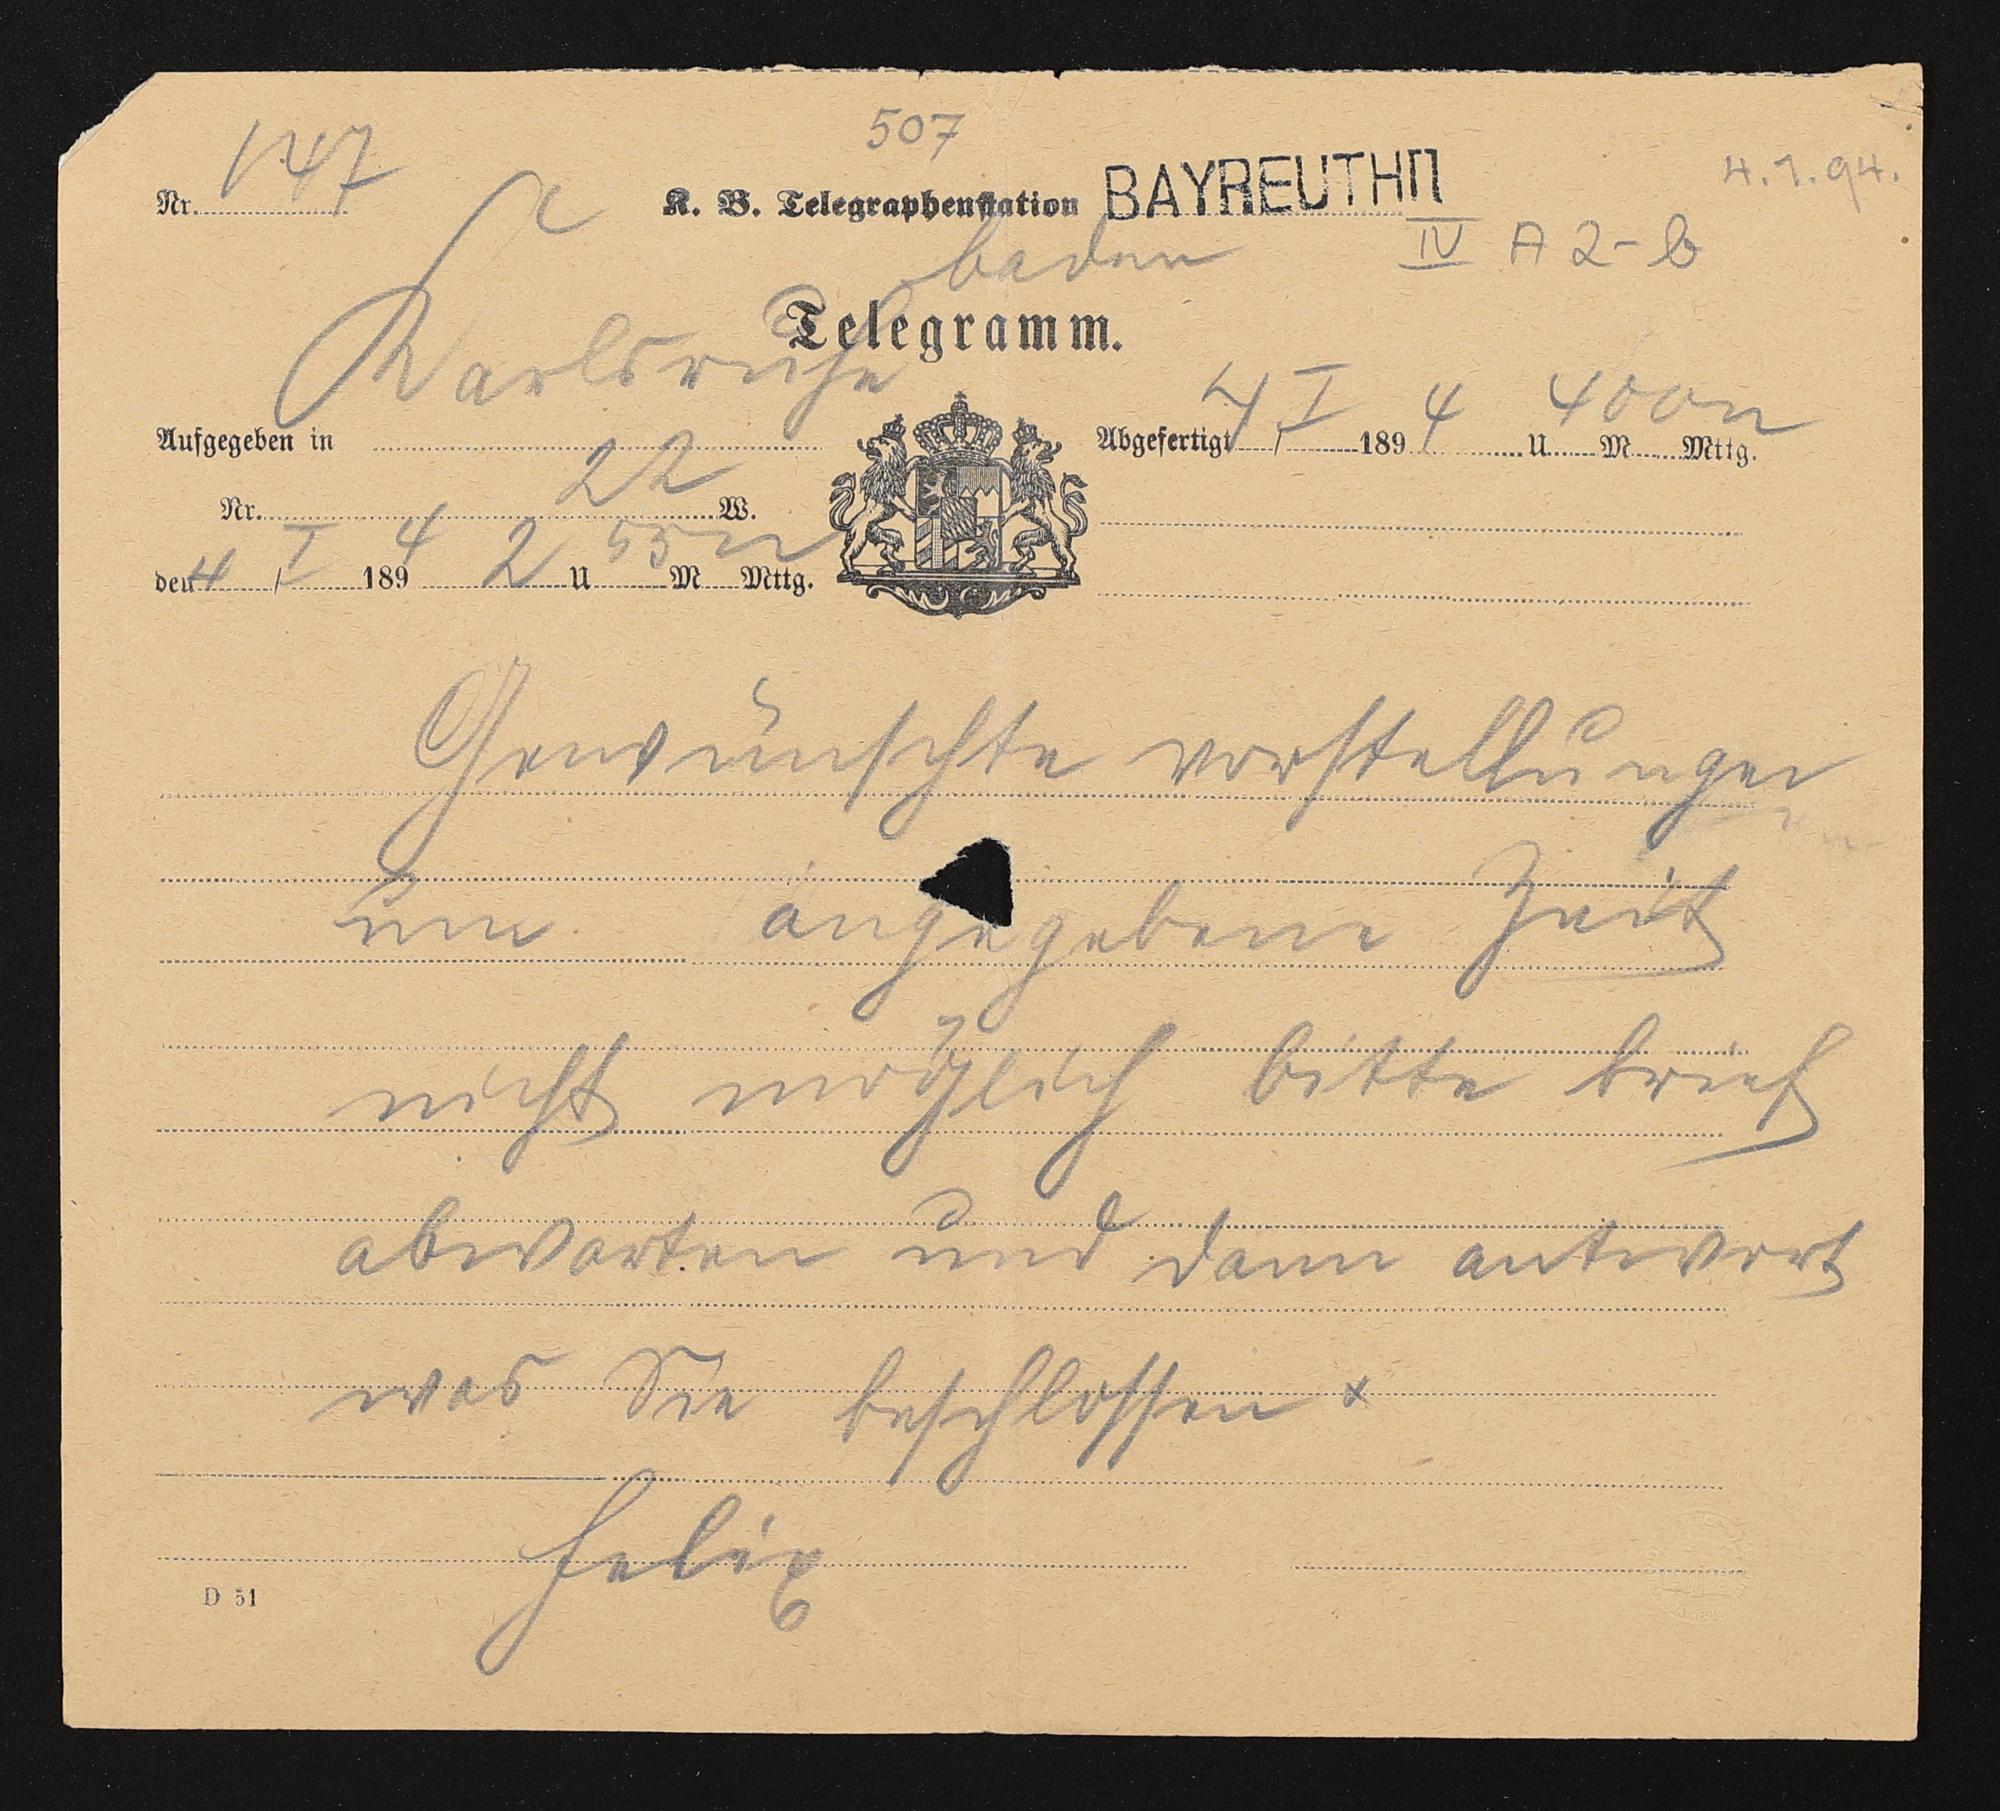 507
Nr. 147
K. B. Telegraphenstation BAYREUTH II
4.1.94.
IV A 2-b
Telegramm.
Karlsruhe baden
Aufgegeben in
Abgefertigt 4/I 1894 U. M. Mttg. 400 n
Nr. 22 W.
den 4/I 1894 2 U 55 M Mttg. n
Gewünschte vorstellungen
um angegebene Zeit
nicht möglich bitte brief
abwarten und dann antwort
was Sie beschlossen x
felix
D 51